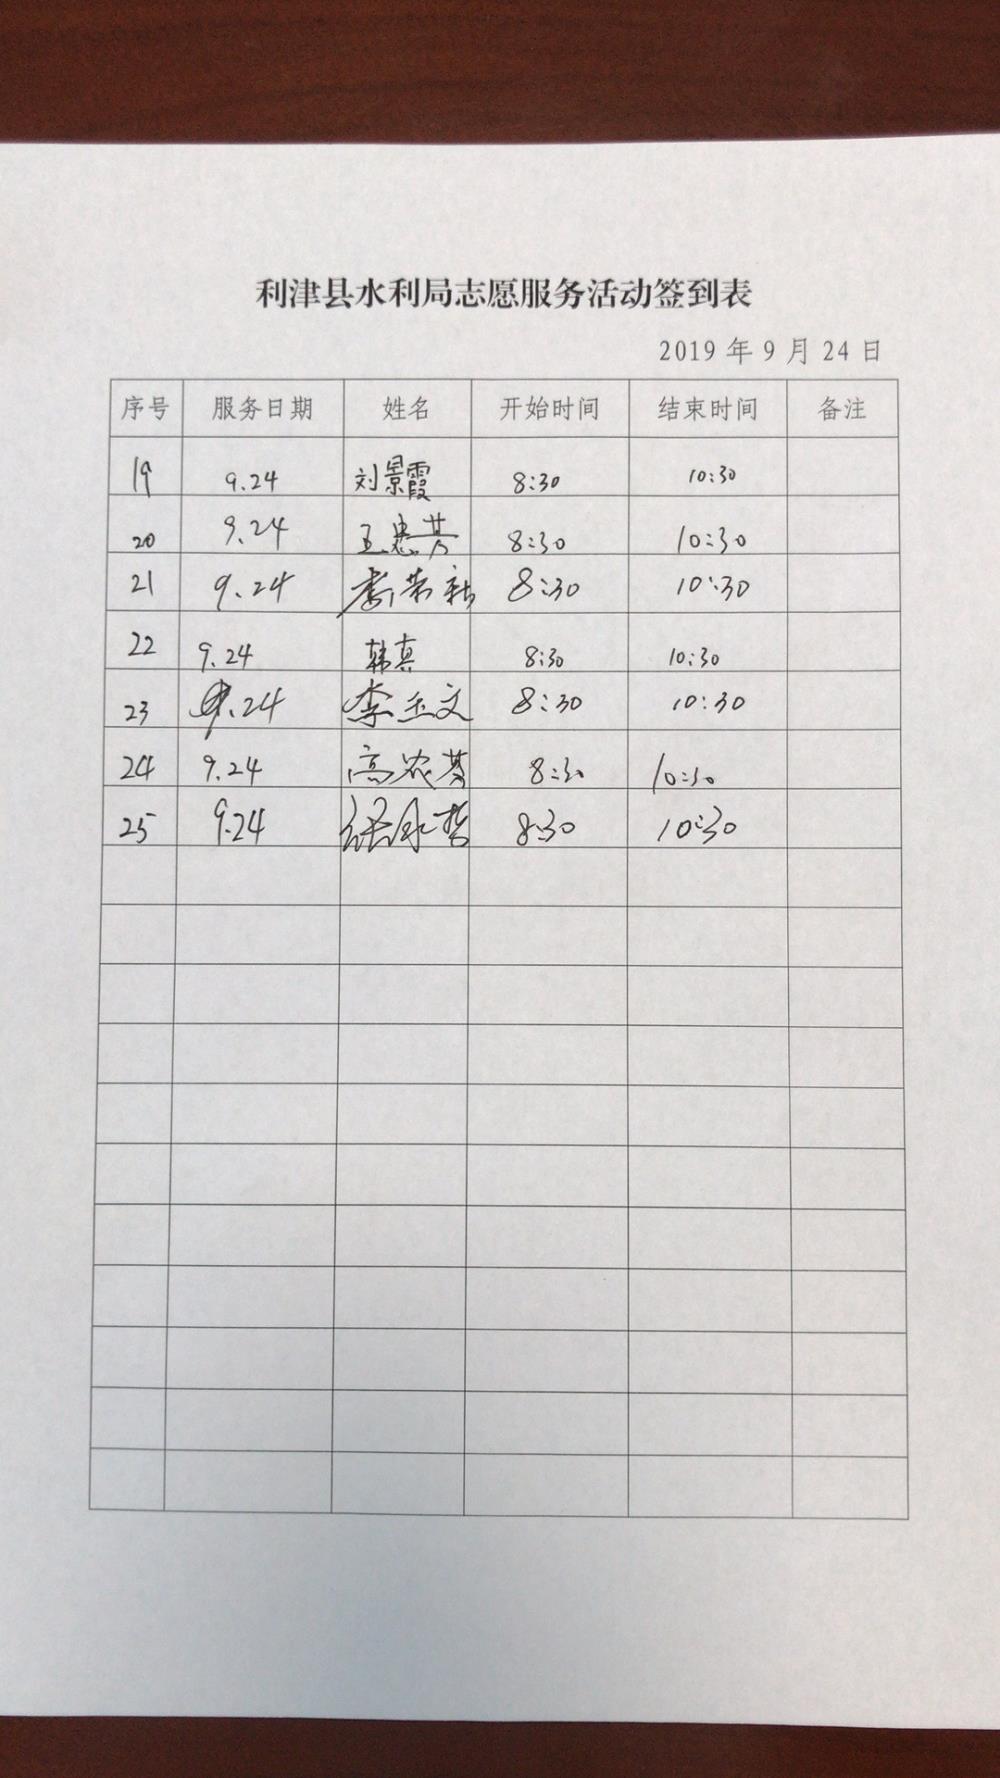 利津县水利局志愿服务活动签到表
2019 年 9 月 24 日
序号 服务日期 姓名 开始时间 结束时间 备注
19 9.24 刘景霞 8:30 10:30
20 9.24 王忠芳 8:30 10:30
21 9.24 8:30 10:30
22 9.24 韩真 8:30 10:30
23 9.24 李玉文 8:30 10:30
24 9.24 高农芬 8:30 10:30
25 9.24 8:30 10:30